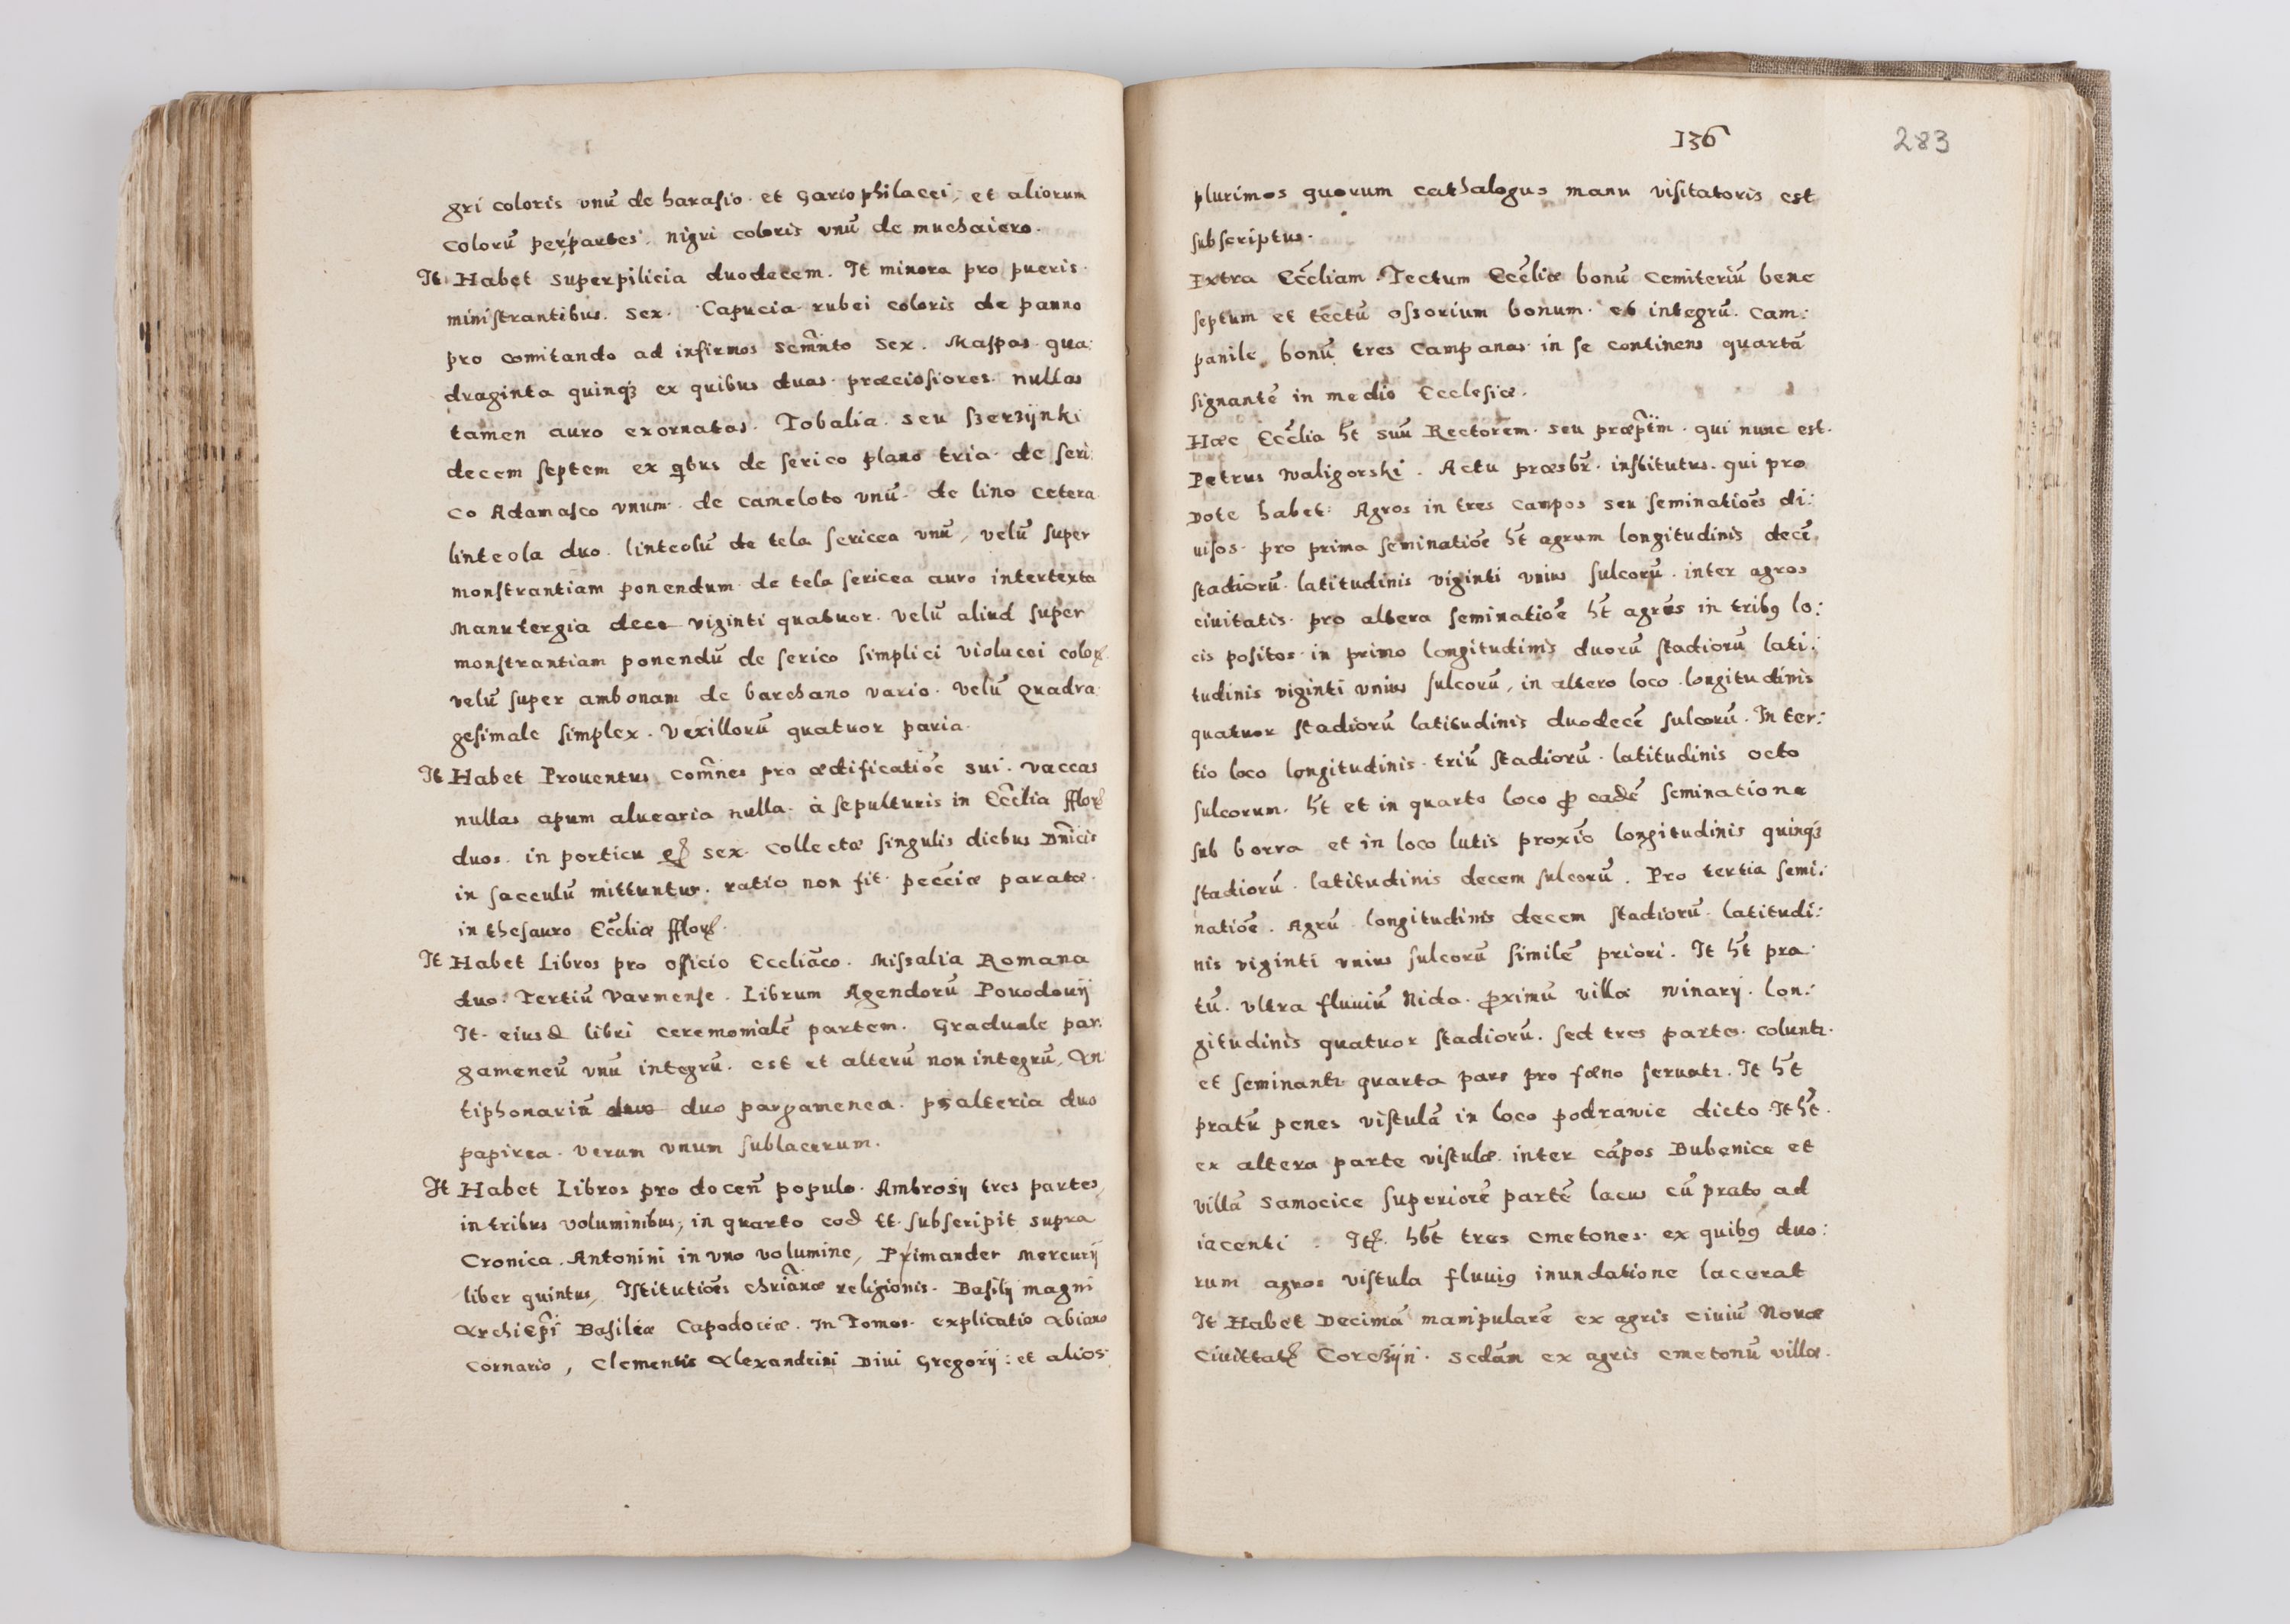 gri coloris vnũ de harasio et gariophilacei, et aliorum
colorũ per partes. nigri coloris vnũ de muchaiero.
It Habet superpilicia duodecem. It minora pro pueris
ministrantibus. sex. Capucia rubei coloris de panno
pro comitando ad infirmos sẽmnto sex. Maspas qua:
draginta quinqȝ ex quibus duas præciosiores nullas
tamen auro exornatas. Tobalia seu szerzÿnki
decem septem ex qbus de serico plano tria de seri
co Adamasco vnum de cameloto vnũ de lino cetera
linteola duo linteolũ de tela sericea vnũ, velũ super
monstrantiam ponendum de tela sericea auro intertexta
Manutergia dece viginti quatuor. velũ aliud super
monstrantiam ponendũ de serico simplici violacei color
velũ super ambonam de barchano vario. velũ Quadra
gesimale simplex. Vexillorũ quatuor paria.
It Habet Prouentus com̃nes pro ædificatiõe sui. vaccas
nullas apum aluearia nulla. à sepulturis in Ecc̃lia fflor
duos. in porticu sex. collectæ singulis diebus Dñicis
in sacculũ mittuntur. ratio non fit pecc̃iæ paratæ
in thesauro Ecc̃liæ fflor.
It Habet Libros pro officio Eccliãco. Missalia Romana
duo. Tertiũ Varmense. Librum Agendorũ Pouodouij
It. eiusd libri ceremonialẽ partem. Graduale par
gameneũ vnũ integrũ. est et alterũ non integrũ, An
tiphonariũ duo duo pargamenea. psalteria duo
papirea. verum vnum sublacerum.
It Habet Libros pro doceñ populo. Ambrosij tres partes,
in tribus voluminibus, in quarto eod tt subscripit supra
Cronica. Antonini in vno volumine, Primander Mercurij
liber quintus, Istitutiões chriãnæ religionis. Basilij magni
Archiep̃i Basileæ Capodociæ. in Tomos explicatio Abiano
Cornario, Clementis Alexandrini Diui Gregorij: et alios
136
283
plurimos quorum cathalogus manu visitatoris est
subscriptus.
Extra Ecc̃liam Tectum Ecc̃liæ bonũ Cemiteriũ bene
septum et tectũ ossorium bonum et integrũ. Cam:
panile bonũ tres Campanas in se continens quartã
signantẽ in medio Ecclesiæ.
Hæc Ecc̃lia h̃t suũ Rectorem seu præp̃tm qui nunc est
Petrus Waligorski. Actu præsbr̃ institutus. qui pro
Dote habet: Agros in tres campos seu seminatiões di:
uisos pro prima seminatiõe h̃t agrum longitudinis decẽ
stadiorũ. latitudinis viginti vnius sulcorũ. inter agros
ciuitatis pro altera seminatiõe h̃t agros in tribꝰ lo:
cis positos in primo longitudinis duorũ stadiorũ lati:
tudinis viginti vnius sulcorũ, in altero loco longitudinis
quatuor stadiorũ latitudinis duodecẽ sulcorũ. In ter:
tio loco longitudinis triũ stadiorũ. latitudinis octo
sulcorum. h̃t et in quarto loco ꝑ eadẽ seminatione
sub borra et in loco lutis proxiõ longitudinis quinqȝ
stadiorũ. latitudinis decem sulcorũ. Pro tertia semi:
natiõe. Agrũ longitudinis decem stadiorũ latitudi:
nis viginti vnius sulcorũ similẽ priori. It h̃t pra
tũ. vltra fluuiũ Nida. proximũ villæ winary. lon:
gitudinis quatuor stadiorũ. sed tres partes coluntr.
et seminantr quarta pars pro fæno seruatr. It h̃t
pratũ penes vistulã in loco podrawie dicto It h̃t.
ex altera parte vistulæ inter cãpos Bubenice et
villã Samocice superiorẽ partẽ lacus cũ prato ad
iacenti. It. hb̃t tres cmetones ex quibꝰ duo:
rum agros vistula fluuiꝰ inundatione lacerat
It Habet Decimã manipularẽ ex agris ciuiũ Nouæ
Ciuittat Corczÿn. sedãm ex agris cmetonũ villæ